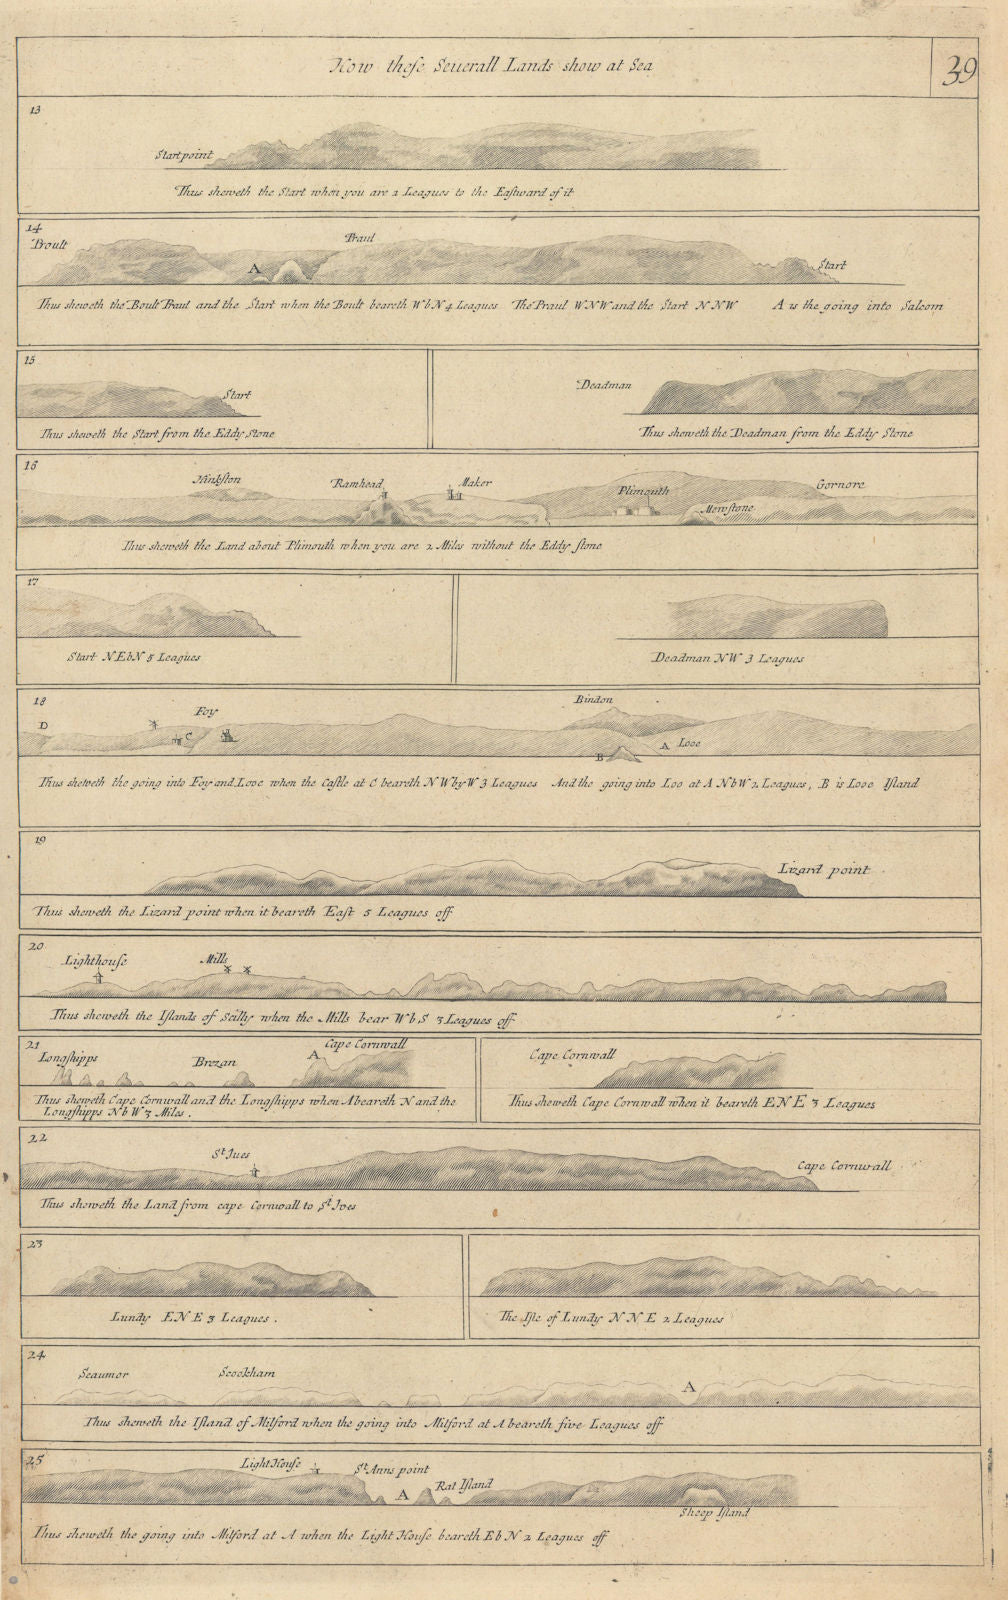 How these Severall Lands show at Sea
39
13
Start point
Thus sheweth the Start when you are 2 Leagues to the Eastward of it
14
Boult
Praul
A
Start
Thus sheweth the Boult Praul and the Start when the Boult beareth WbN 4 Leagues The Praul WNW and the Start NNW A is the going into Salcom
15
Start
Thus sheweth the Start from the Eddy Stone
Deadman
Thus sheweth the Deadman from the Eddy Stone
16
Hinkston
Ramhead
Maker
Plimouth
Mewstone
Gornore
Thus sheweth the Land about Plimouth when you are 2 Miles without the Eddy stone
17
Start NEbN 5 Leagues
Deadman NW 3 Leagues
18
D
Foy
C
Bindon
B
A Looe
Thus sheweth the going into Foy and Looe when the Castle at C beareth NWbyW 3 Leagues And the going into Loo at A NbW 2 Leagues, B is Looe Island
19
Lizard point
Thus sheweth the Lizard point when it beareth East 5 Leagues off
20
Lighthouse
Mills
Thus sheweth the Islands of Scilly when the Mills bear WbS 3 Leagues off
21
Longshipps
Brezan
A
Cape Cornwall
Thus sheweth Cape Cornwall and the Longshipps when A beareth N and the
Longshipps NbW 3 Miles.
Cape Cornwall
Thus sheweth Cape Cornwall when it beareth ENE 3 Leagues
22
St. Jues
Cape Cornwall
Thus sheweth the Land from cape Cornwall to St. Jves
23
Lundy ENE 3 Leagues.
The Isle of Lundy NNE 2 Leagues
24
Scaumor
Scockham
A
Thus sheweth the Island of Milford when the going into Milford at A beareth five Leagues off
25
Light House
St. Anns point
A
Rat Island
Sheep Island
Thus sheweth the going into Milford at A when the Light House beareth EbN 2 Leagues off